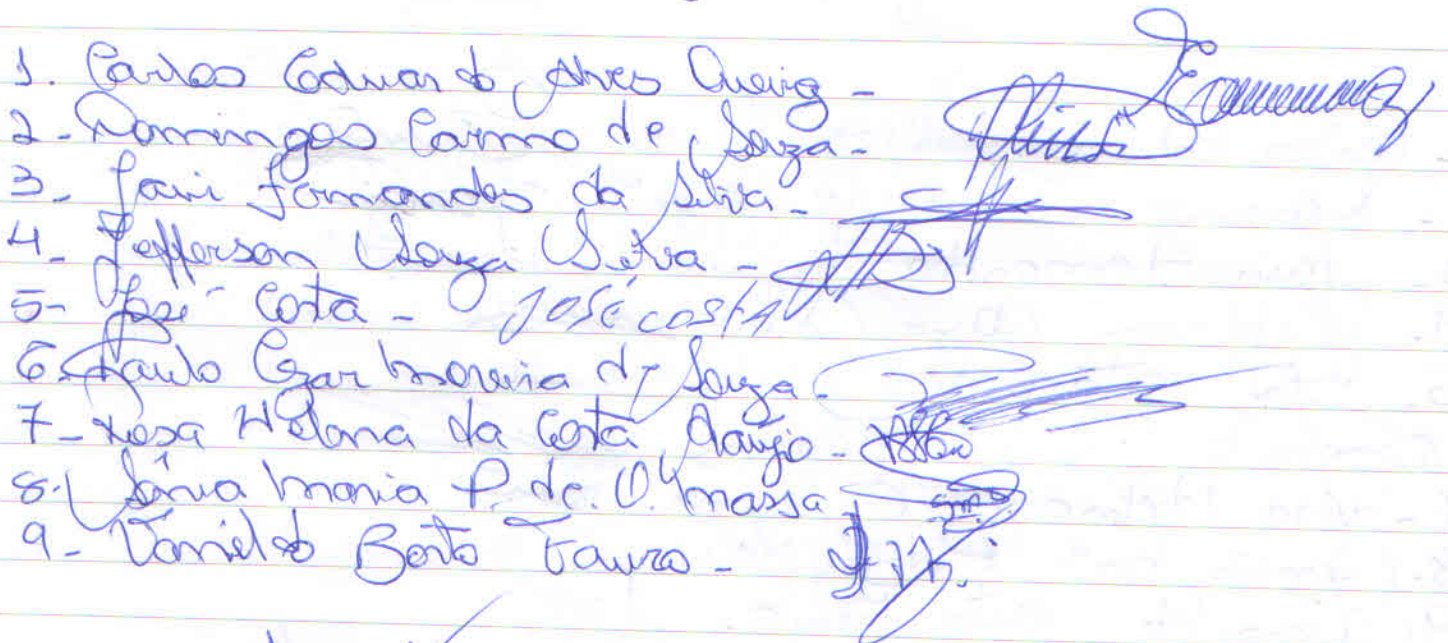 1. Carlos Eduardo Alves Queiroz -
2 - Domingos Carmo de Souza -
3 - Jani Fernandes da Silva -
4 - Jefferson Souza Silva -
5 - José Costa - JOSÉ COSTA
6 - Paulo Cezar Moreira de Souza -
7 - Rosa Helena da Costa Araujo -
8 - Sônia Maria P. de. O. Massa
9 - Vanildo Bento Fauro -